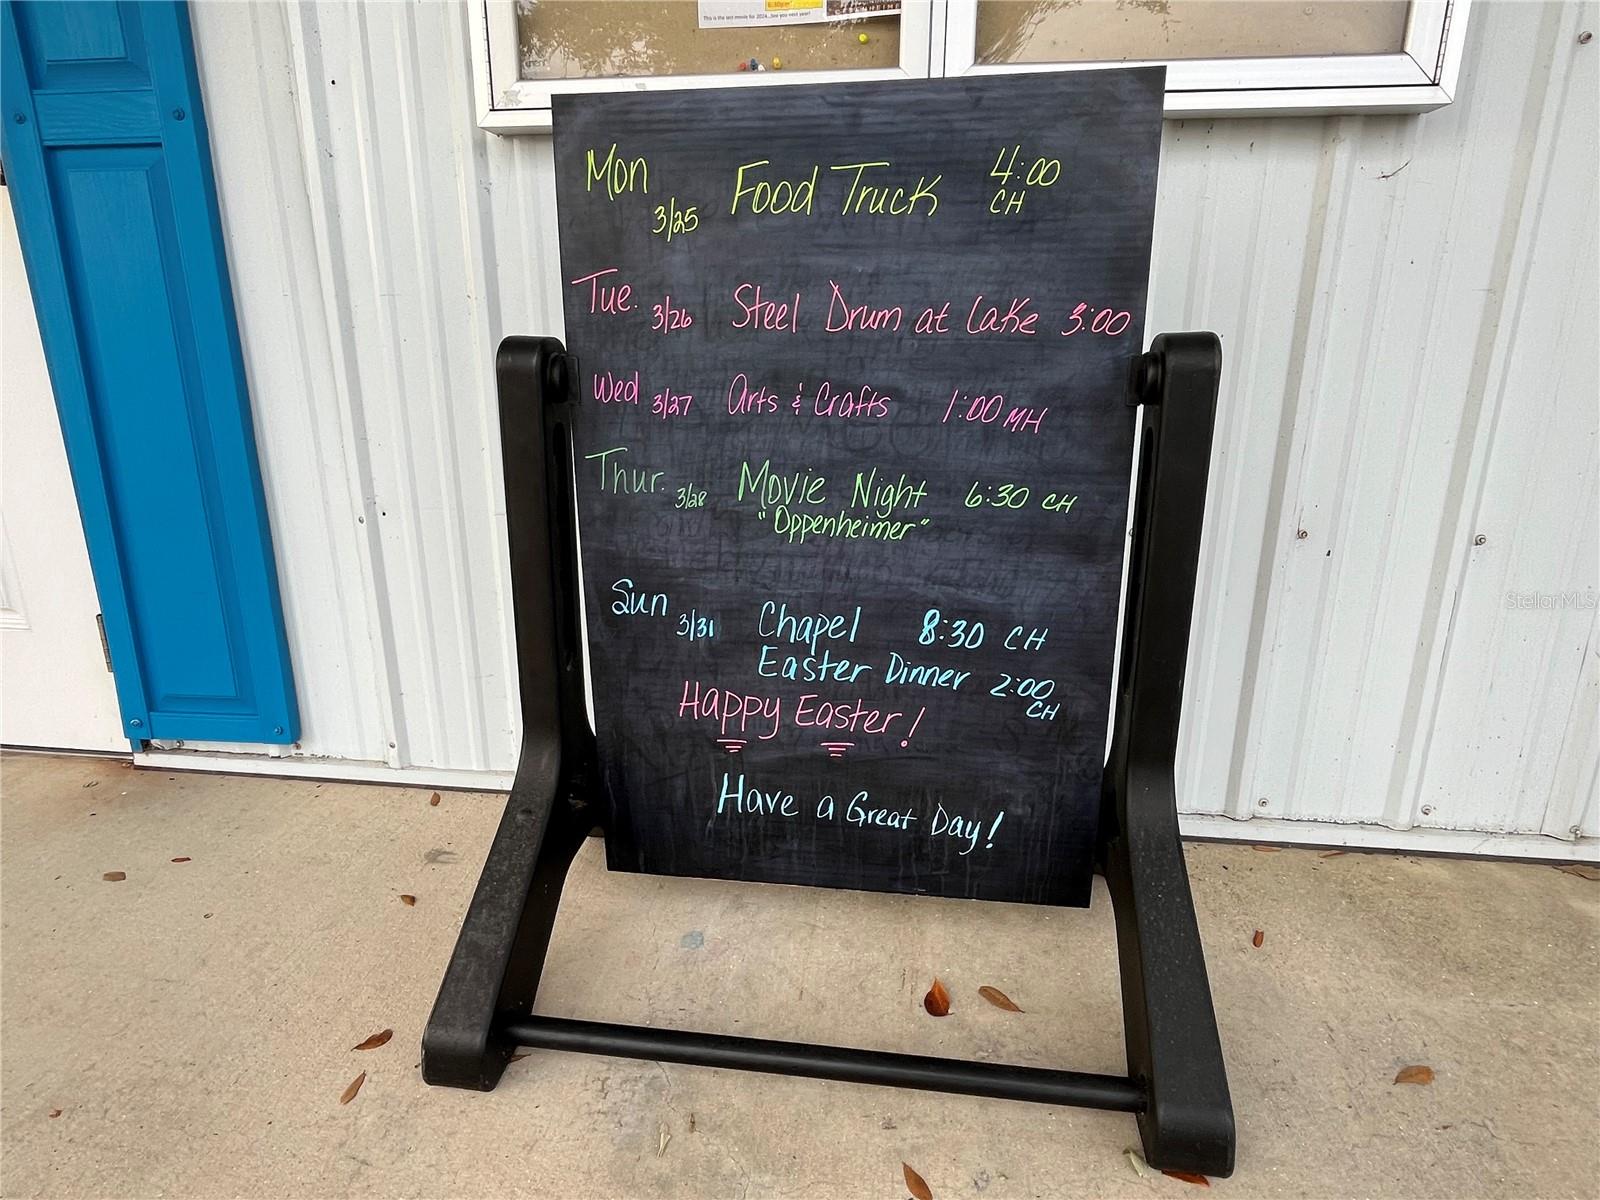 6:30pm
This is the last movie for 2024...See you next year!
Mon 3/25 Food Truck 4:00 CH
Tue. 3/26 Steel Drum at Lake 3:00
Wed 3/27 Arts & Crafts 1:00 MH
Thur. 3/28 Movie Night 6:30 CH
"Oppenheimer"
Sun 3/31 Chapel 8:30 CH
Easter Dinner 2:00 CH
Happy Easter!
Have a Great Day!
Stellar MLS